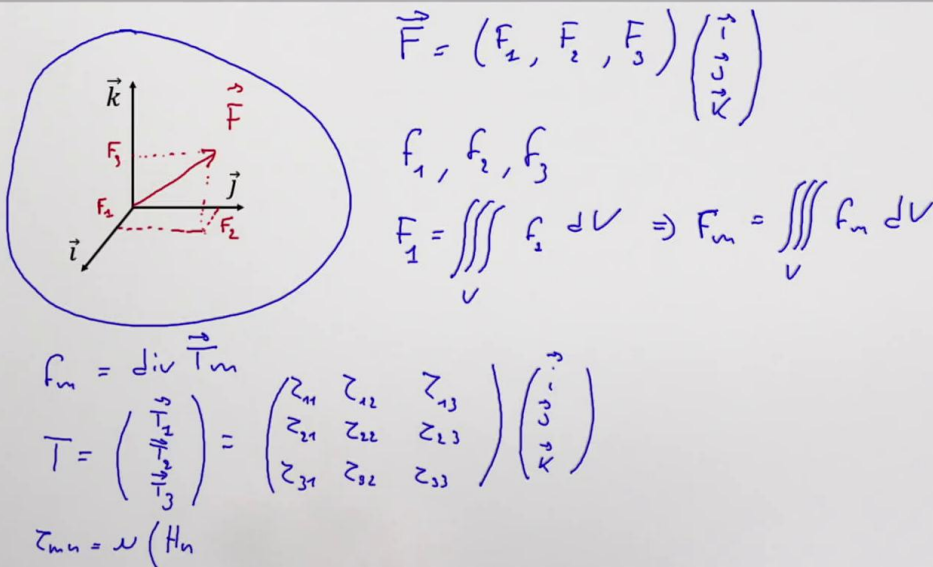 F⃗ = (F₁, F₂, F₃) (i⃗ j⃗ k⃗)
k⃗
F⃗
F₃
f₁, f₂, f₃
j⃗
F₁
F₂
i⃗
F₁ = ∭_V f₁ dV ⇒ F_m = ∭_V f_m dV
f_m = div T⃗_m
T = (T⃗₁ T⃗₂ T⃗₃) = (τ₁₁ τ₁₂ τ₁₃ τ₂₁ τ₂₂ τ₂₃ τ₃₁ τ₃₂ τ₃₃) (i⃗ j⃗ k⃗)
τ_mn = μ (H_n